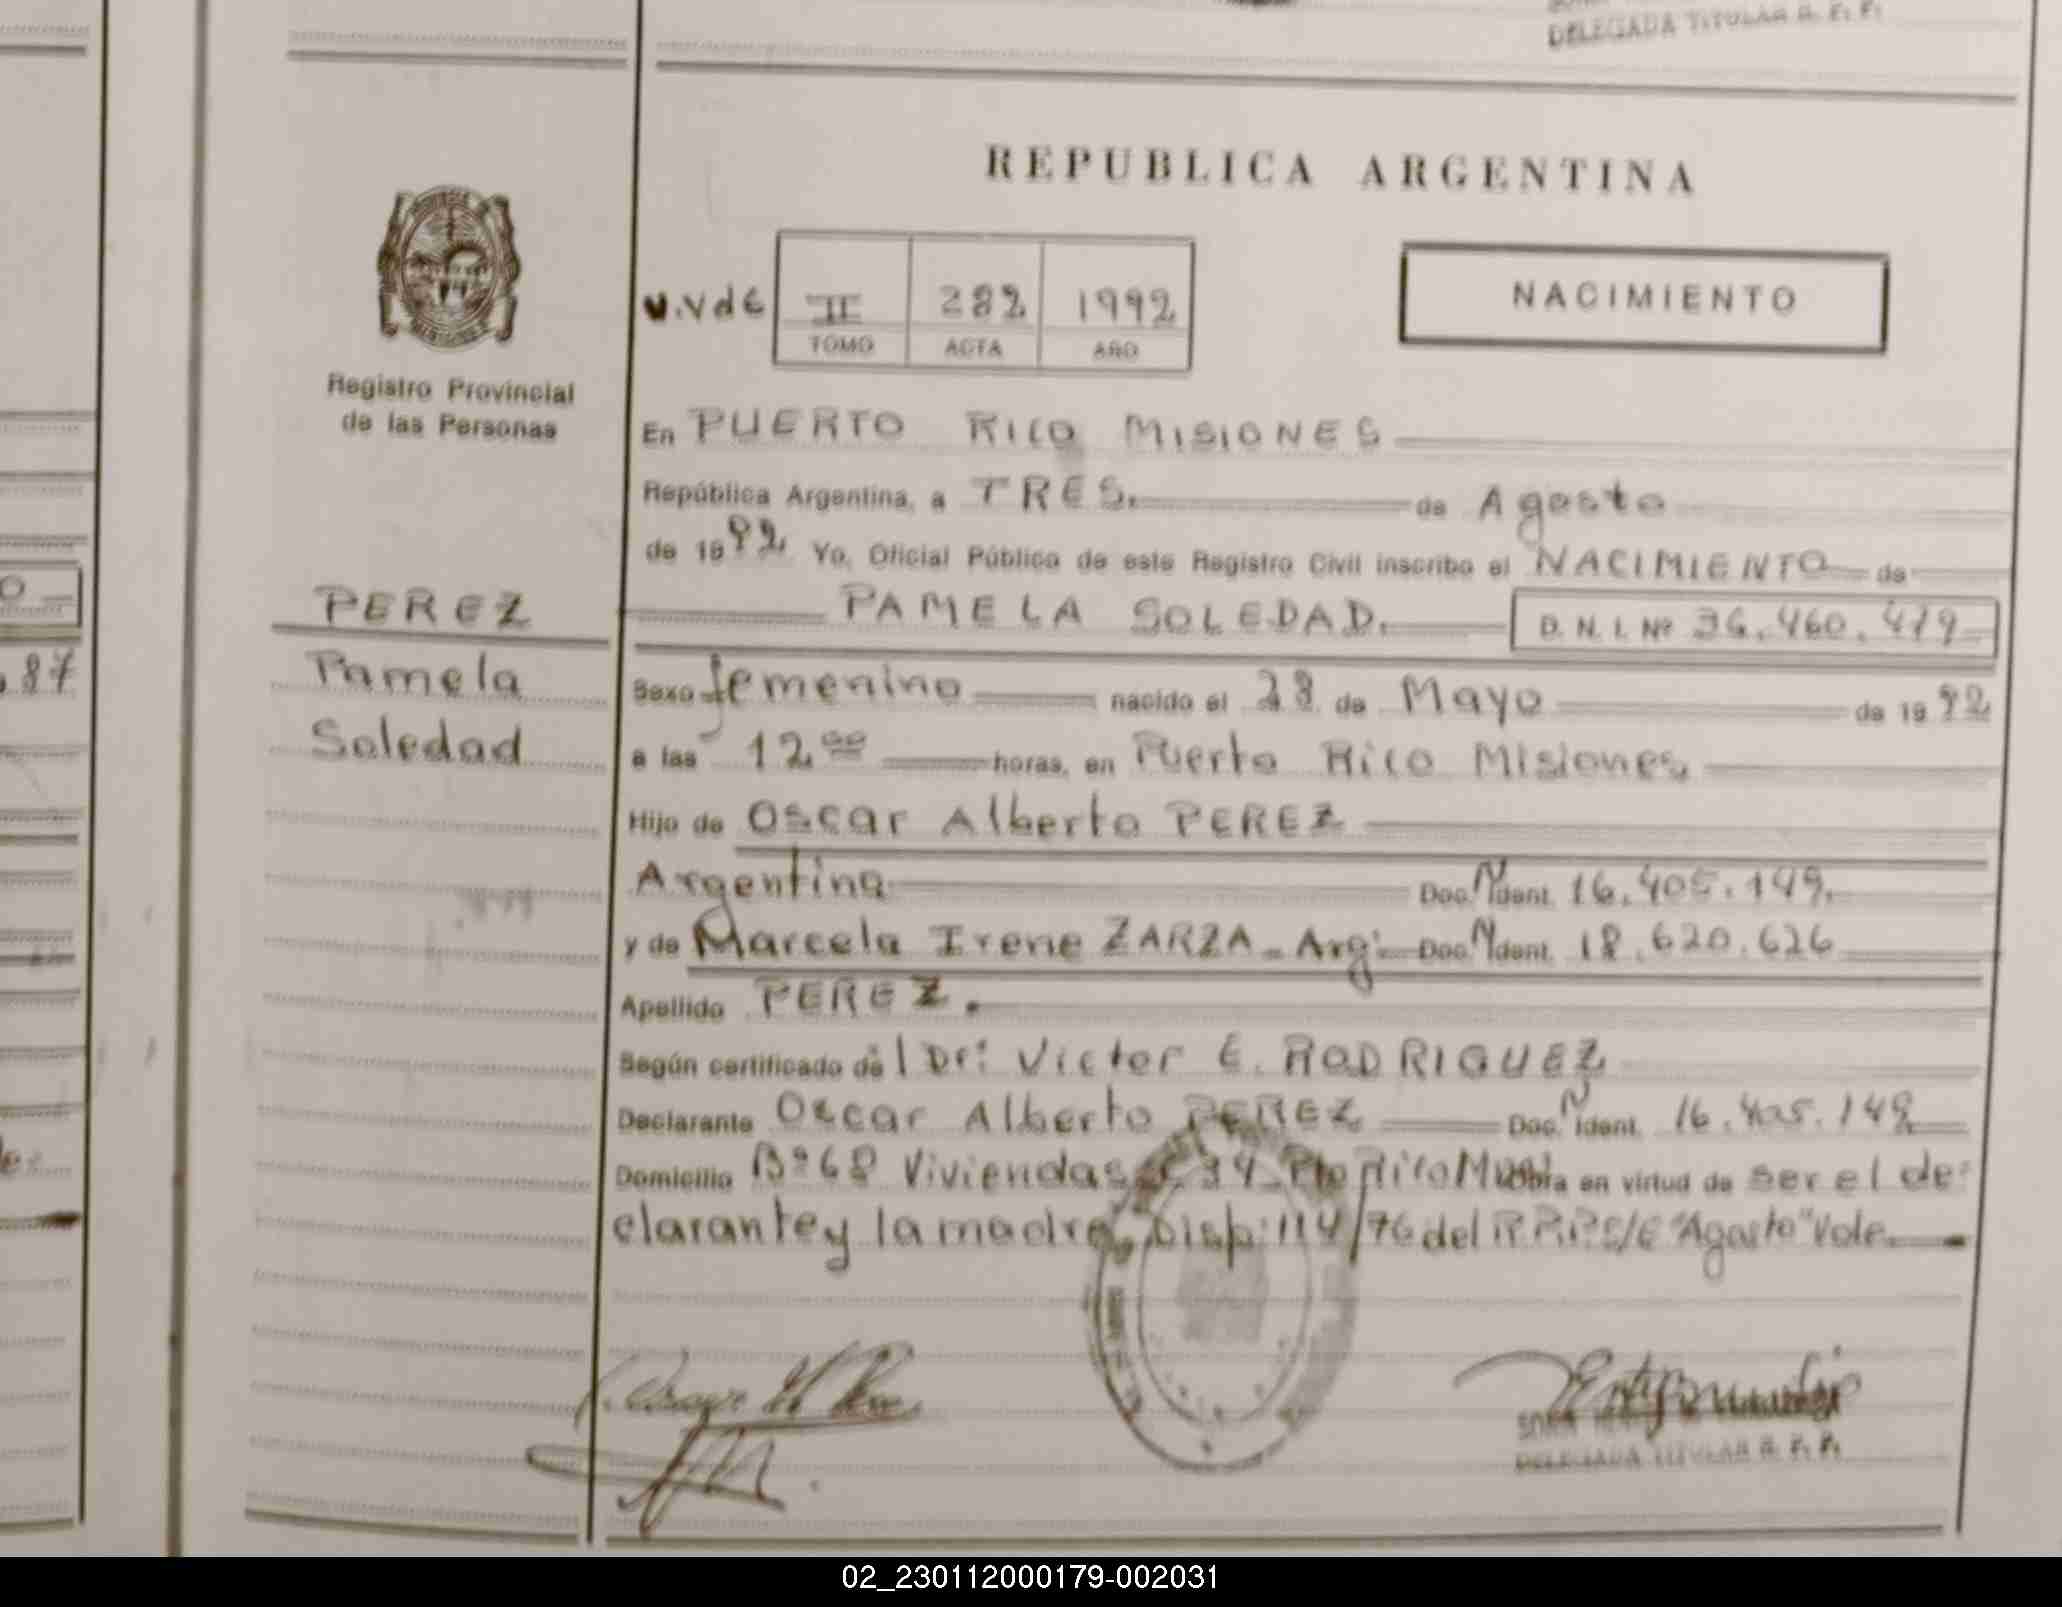 DELEGADA TITULAR R. P. P.
REPUBLICA ARGENTINA
II 282 1992
TOMO ACTA AÑO
NACIMIENTO
Registro Provincial
de las Personas
En PUERTO RICO MISIONES
República Argentina, a TRES. de Agosto
de 1992 Yo, Oficial Público de este Registro Civil inscribo el NACIMIENTO de
PEREZ
PAMELA SOLEDAD. D. N. I. Nº 36.460.479
Pamela
Sexo femenino nacido el 28 de Mayo de 1992
Soledad
a las 12 00 horas, en Puerto Rico Misiones
Hijo de Oscar Alberto PEREZ
Argentina Doc. N Ident. 16.405.149.
y de Marcela Irene ZARZA - Arg: Doc. N Ident. 18.620.626
Apellido PEREZ.
Según certificado del Dr: Victor E. RODRIGUEZ
Declarante Oscar Alberto PEREZ Doc. N Ident. 16.405.149
Domicilio Bº 68 Viviendas Pto Rico Obra en virtud de ser el de=
clarante y la madre. Disp: 114/76 del R.P.P. S/E "Agosto" Vale.
DELEGADA TITULAR R. P. P.
87
02_230112000179-002031